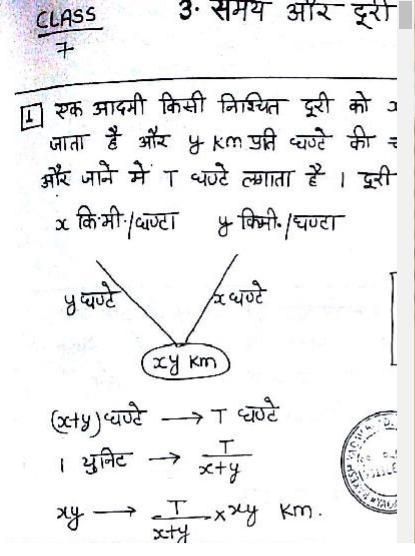 CLASS
7
3. समय और दूरी
1 एक आदमी किसी निश्चित दूरी को x
जाता है और y km प्रति घण्टे की
और जाने में T घण्टे लगाता है । दूरी
x कि.मी./घण्टा y किमी./घण्टा
y घण्टे x घण्टे
xy km
(x+y) घण्टे → T घण्टे
1 युनिट → T/x+y
xy → T/x+y × xy km.